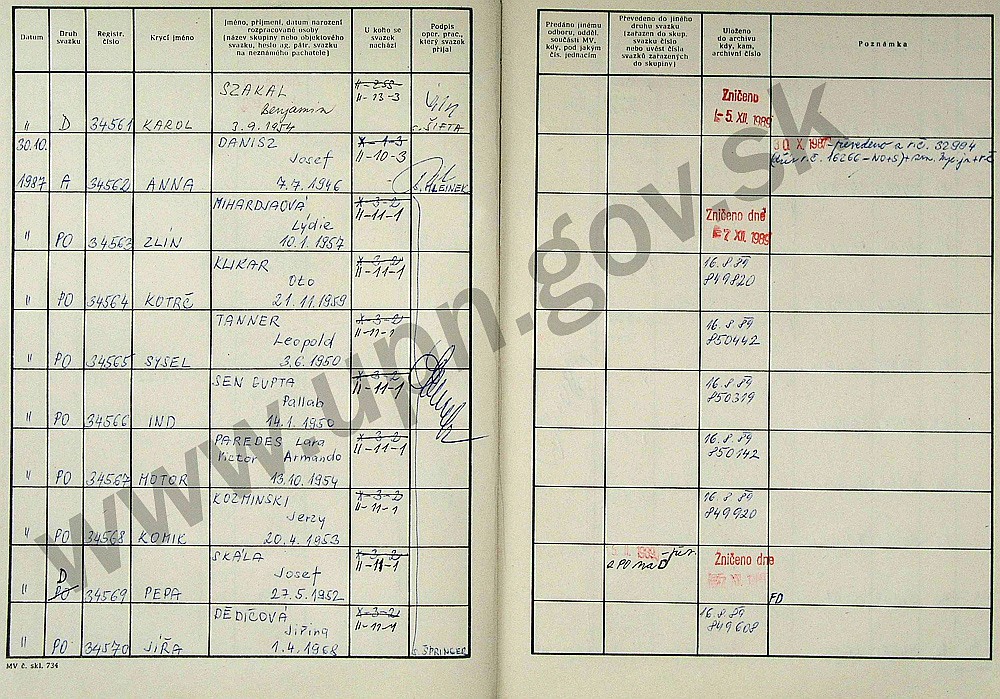 Datum
Druh svazku
Registr. číslo
Krycí jméno
Jméno, příjmení, datum narození rozpracované osoby (název skupiny nebo objektového svazku, heslo ag. pátr. svazku na neznámého pachatele)
U koho se svazek nachází
Podpis oper. prac., který svazek přijal
Předáno jinému odboru, odděl. součásti MV, kdy, pod jakým čís. jednacím
Převedeno do jiného druhu svazku (zařazen do skup. svazku číslo nebo uvést čísla svazků zařazených do skupiny)
Uloženo do archivu kdy, kam, archivní číslo
Poznámka
" D 34561 KAROL
SZAKAL
Benjamin
3.9.1954
II-13-3
ŠIFTA
Zničeno
-5. XII. 1989
30.10.
1987 A 34562 ANNA
DANISZ
Josef
7.7.1946
X-1-3
II-10-3
30. X. 1987 - převedeno a r.č. 32994
" PO 34563 ZLÍN
Lýdie
10.1.1957
X-3-2
II-11-1
Zničeno dne
XII. 1989
" PO 34564 KOTRČ
KLIKAR
Oto
21.11.1959
X-3-2
II-11-1
16.8.89
849820
" PO 34565 SYSEL
TANNER
Leopold
3.6.1950
X-3-2
II-11-1
16.8.89
850442
" PO 34566 IND
SEN GUPTA
Pallab
14.1.1950
X-3-2
II-11-1
16.8.89
850319
" PO 34567 MOTOR
PAREDES Lara
Victor Armando
13.10.1954
X-3-2
II-11-1
16.8.89
850142
" PO 34568 KOMIK
KOZMINSKI
Jerzy
20.4.1953
X-3-2
II-11-1
16.8.89
849920
D
" PO 34569 PEPA
SKÁLA
Josef
27.5.1952
X-3-2
II-11-1
a PO na D
Zničeno dne
FD
" PO 34570 JÍŘA
DĚDIČOVÁ
Jiřina
1.4.1968
X-3-2
II-11-1
ŠPRINGER
16.8.89
849608
MV č. skl. 734
www.upn.gov.sk